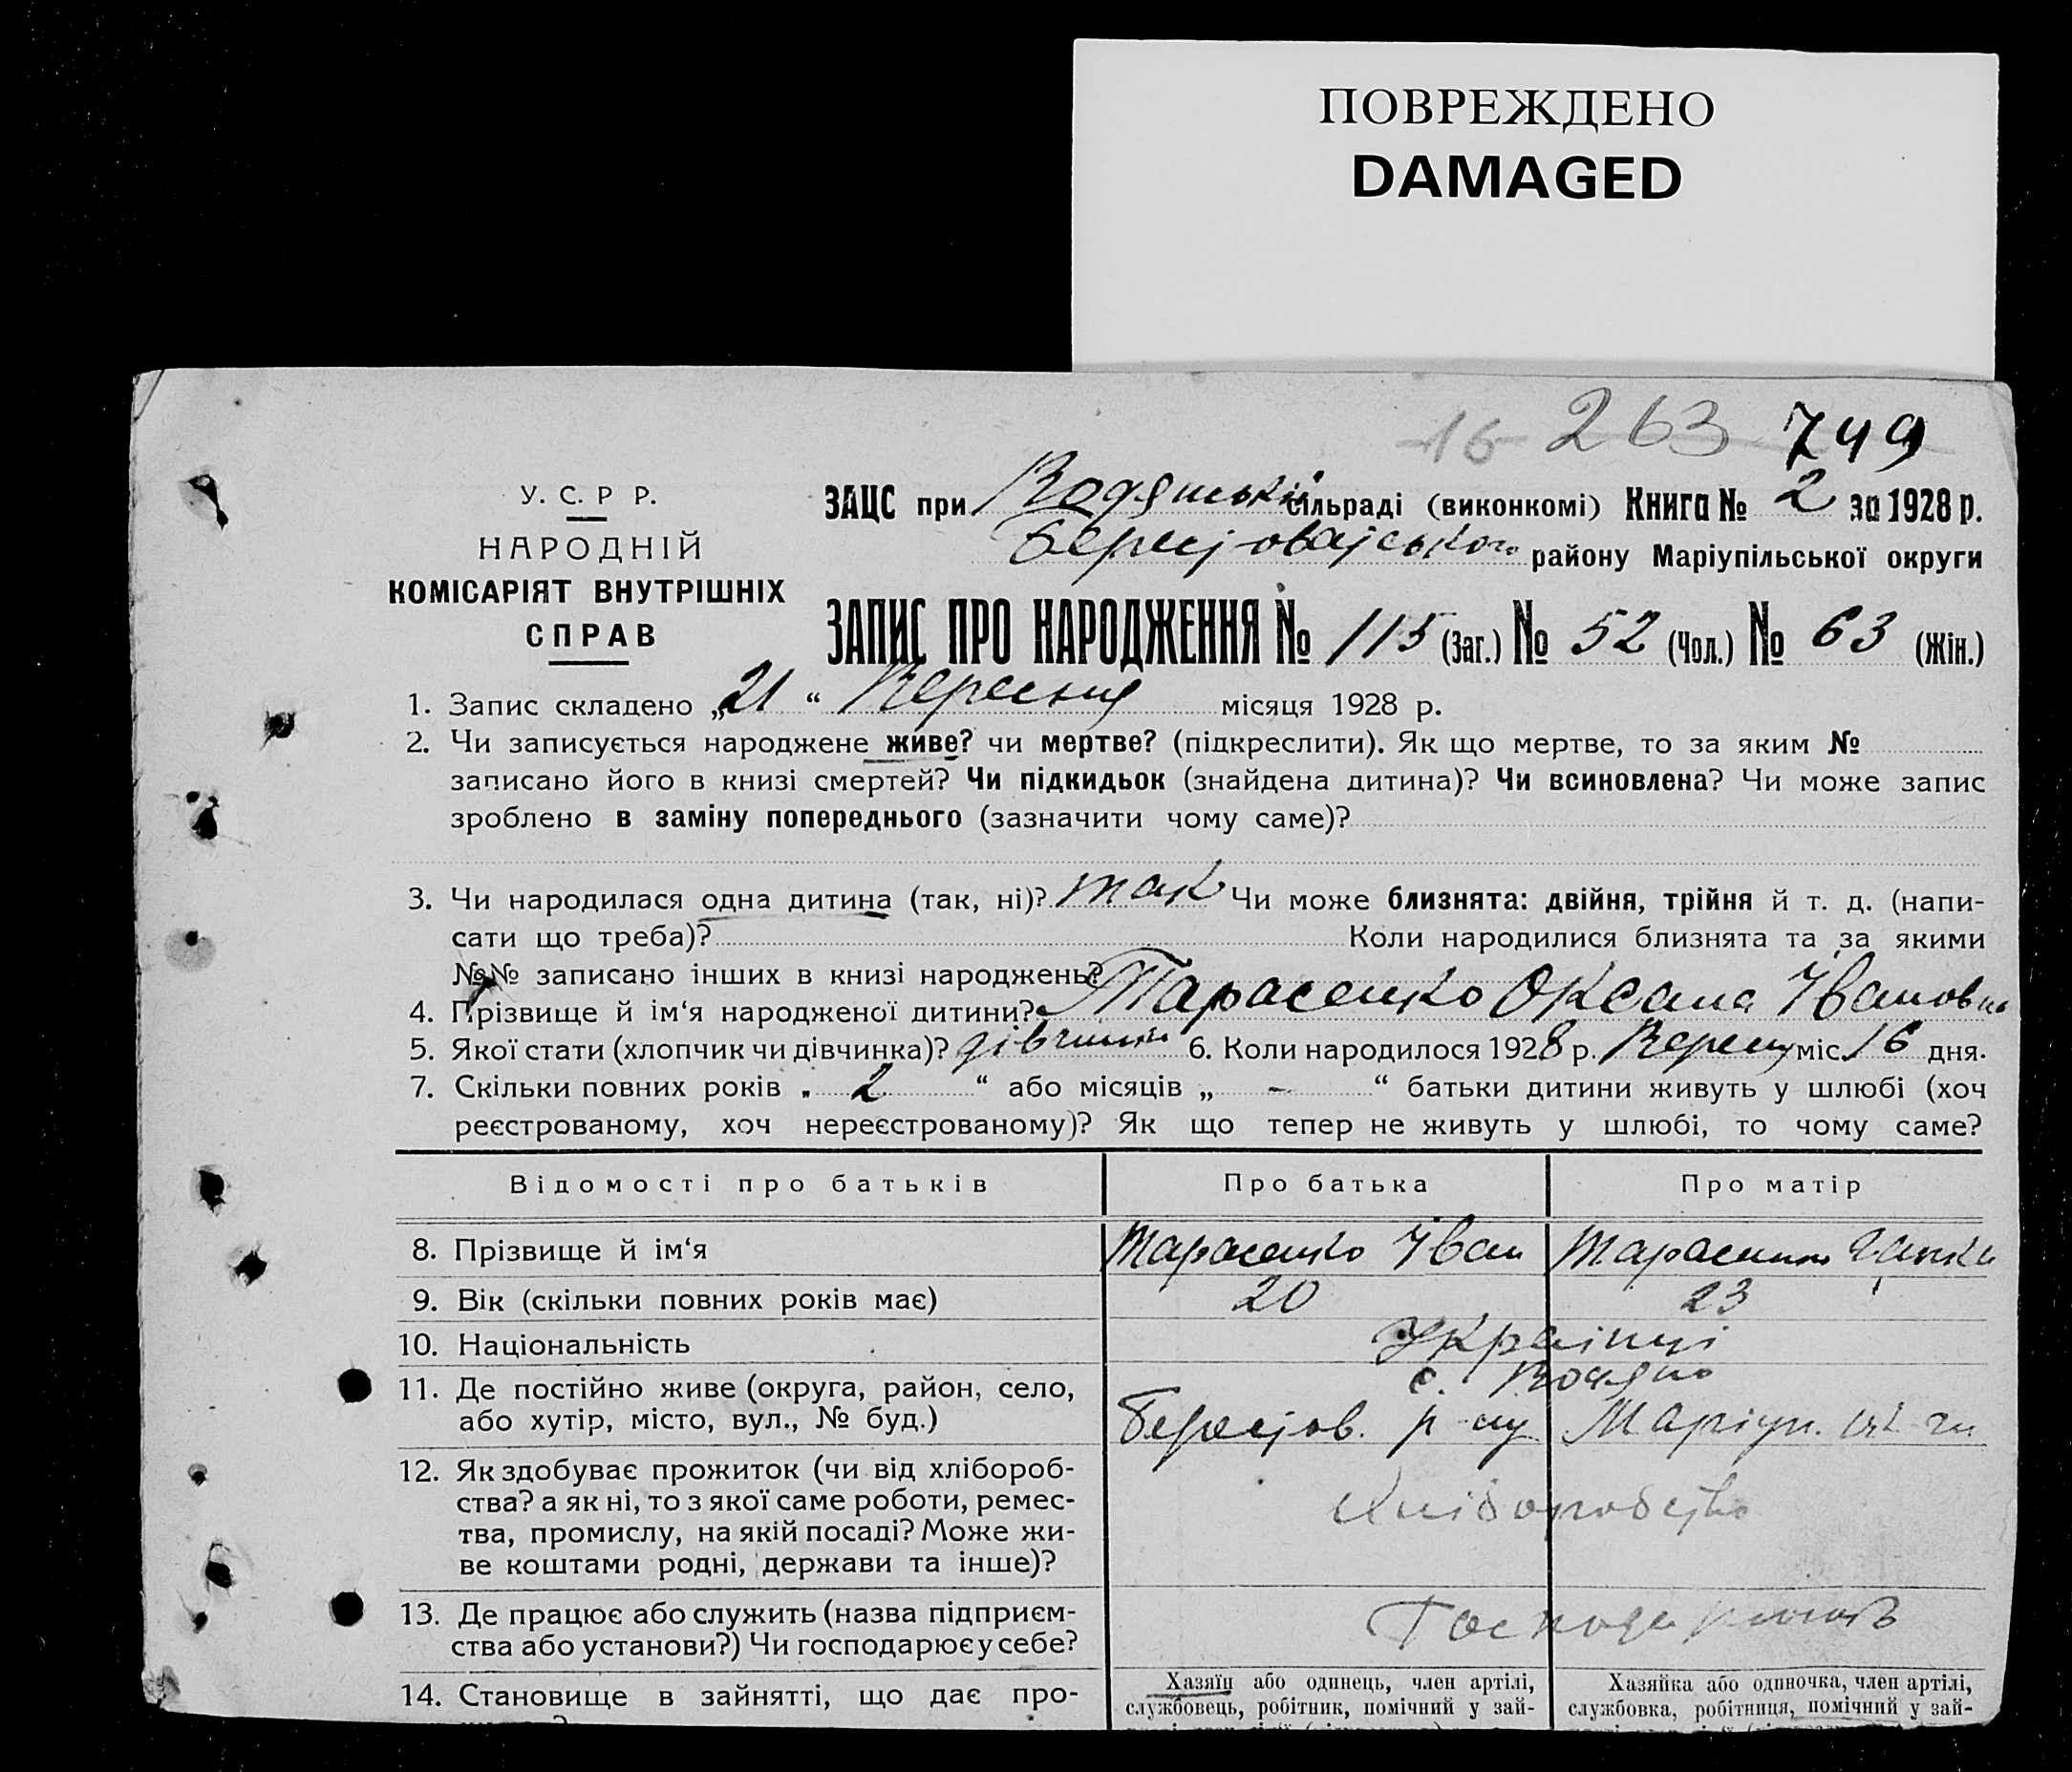 ПОВРЕЖДЕНО
DAMAGED
16 263 749
У. С. Р Р.
НАРОДНІЙ
КОМІСАРІЯТ ВНУТРІШНІХ
СПРАВ
ЗАЦС при Водянській сільраді (виконкомі) Книга № 2 за 1928 р.
району Маріупільської округи
ЗАПИС ПРО НАРОДЖЕННЯ № 115 (Заг.) № 52 (Чол.) № 63 (Жін.)
1. Запис складено „21“ Вересня місяця 1928 р.
2. Чи записується народжене живе? чи мертве? (підкреслити). Як що мертве, то за яким №
записано його в книзі смертей? Чи підкидьок (знайдена дитина)? Чи всиновлена? Чи може запис
зроблено в заміну попереднього (зазначити чому саме)?
3. Чи народилася одна дитина (так, ні)? так Чи може близнята: двійня, трійня й т. д. (напи-
сати що треба)? Коли народилися близнята та за якими
№№ записано інших в книзі народжень?
4. Прізвище й ім‘я народженої дитини? Тарасенко Оксана Івановна
5. Якої стати (хлопчик чи дівчинка)? дівчинка 6. Коли народилося 1928 р. Вересня міс. 16 дня.
7. Скільки повних років „ 2 “ або місяців „ – “ батьки дитини живуть у шлюбі (хоч
реєстрованому, хоч нереєстрованому)? Як що тепер не живуть у шлюбі, то чому саме?
Відомості про батьків Про батька Про матір
8. Прізвище й ім‘я Тарасенко Іван Тарасенко Ганна
9. Вік (скільки повних років має) 20 23
10. Національність Українці
11. Де постійно живе (округа, район, село, с. Водяно
або хутір, місто, вул., № буд.) р-ну Маріуп.
12. Як здобуває прожиток (чи від хлібороб-
ства? а як ні, то з якої саме роботи, ремес- Хліборобство
тва, промислу, на якій посаді? Може жи-
ве коштами родні, держави та інше)?
13. Де працює або служить (назва підприєм-
ства або установи?) Чи господарює у себе?
14. Становище в зайнятті, що дає про- Хазяїн або одинець, член артілі, Хазяйка або одиночка, член артілі,
службовець, робітник, помічний у зай- службовка, робітниця, помічний у зай-